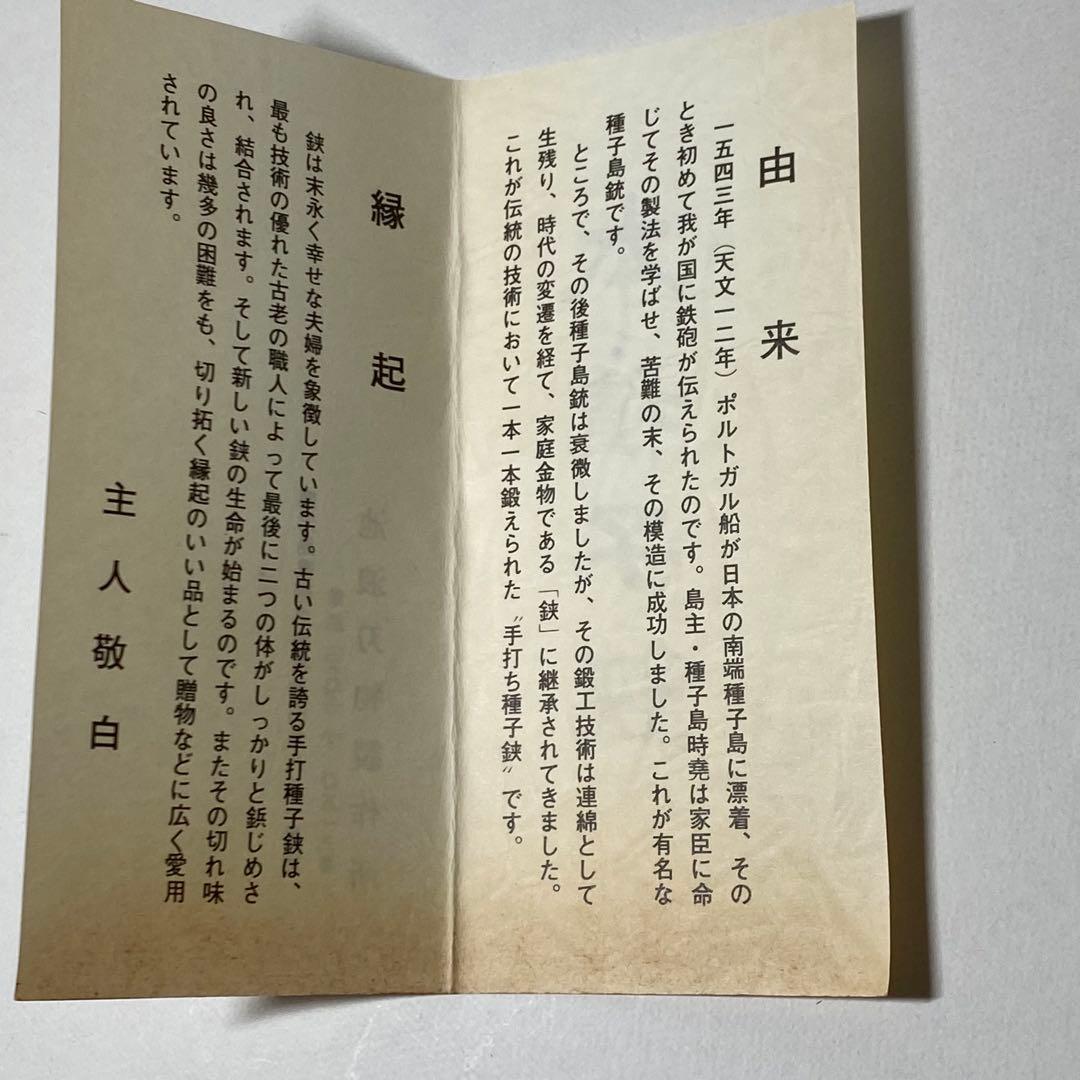 由来
一五四三年（天文一二年）ポルトガル船が日本の南端種子島に漂着、その
とき初めて我が国に鉄砲が伝えられたのです。島主・種子島時堯は家臣に命
じてその製法を学ばせ、苦難の末、その模造に成功しました。これが有名な
種子島銃です。
ところで、その後種子島銃は衰微しましたが、その鍛工技術は連綿として
生残り、時代の変遷を経て、家庭金物である「鋏」に継承されてきました。
これが伝統の技術において一本一本鍛えられた〝手打ち種子鋏〟です。
縁起
鋏は末永く幸せな夫婦を象徴しています。古い伝統を誇る手打種子鋏は、
最も技術の優れた古老の職人によって最後に二つの体がしっかりと鋲じめさ
れ、結合されます。そして新しい鋏の生命が始まるのです。またその切れ味
の良さは幾多の困難をも、切り拓く縁起のいい品として贈物などに広く愛用
されています。
主人敬白